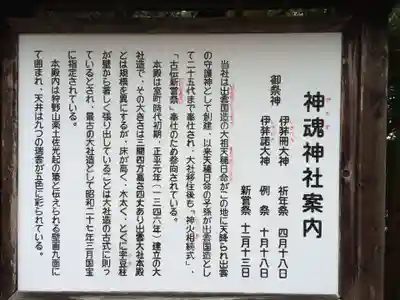 神魂神社案内
御祭神
伊弉冊大神
伊弉諾大神
祈年祭 四月十八日
例祭 十月十八日
新嘗祭 十二月十三日
当社は出雲国造の大祖天穂日命がこの地に天降られ出雲
の守護神として創建、以来天穂日命の子孫が出雲国造とし
て二十五代まで奉仕され、大社移住後も「神火相続式」、
「古伝新嘗祭」奉仕のため参向されている。
本殿は室町時代初期、正平元年(一三四六年)建立の大
社造で、その大きさは三間四方高さ四丈あり出雲大社本殿
とは規模を異にするが、床が高く、木太く、とくに宇豆柱
が壁から著しく張り出していることは大社造の古式に則っ
ているとされ、最古の大社造として昭和二十七年三月国宝
に指定されている。
本殿内は狩野山楽土佐光起の筆と伝えられる壁画九面に
て囲まれ、天井は九つの瑞雲が五色に彩られている。